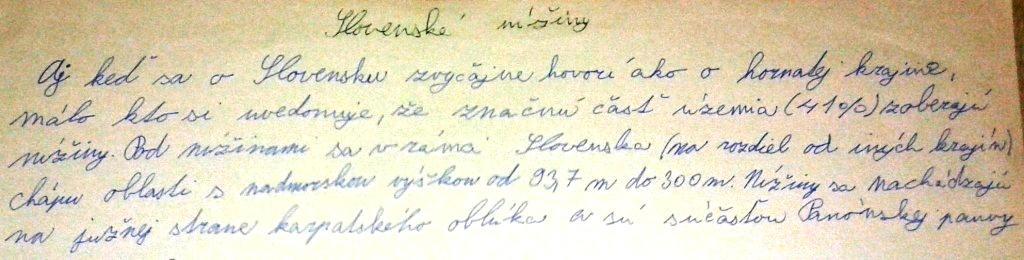 Slovenské nížiny
Aj keď sa o Slovensku zvyčajne hovorí ako o hornatej krajine,
málo kto si uvedomuje, že značnú časť územia (41%) zaberajú
nížiny. Pod nížinami sa v rámci Slovenska (na rozdiel od iných krajín)
chápu oblasti s nadmorskou výškou od 93,7 m do 300 m. Nížiny sa nachádzajú
na južnej strane karpatského oblúka a sú súčasťou Panónskej panvy